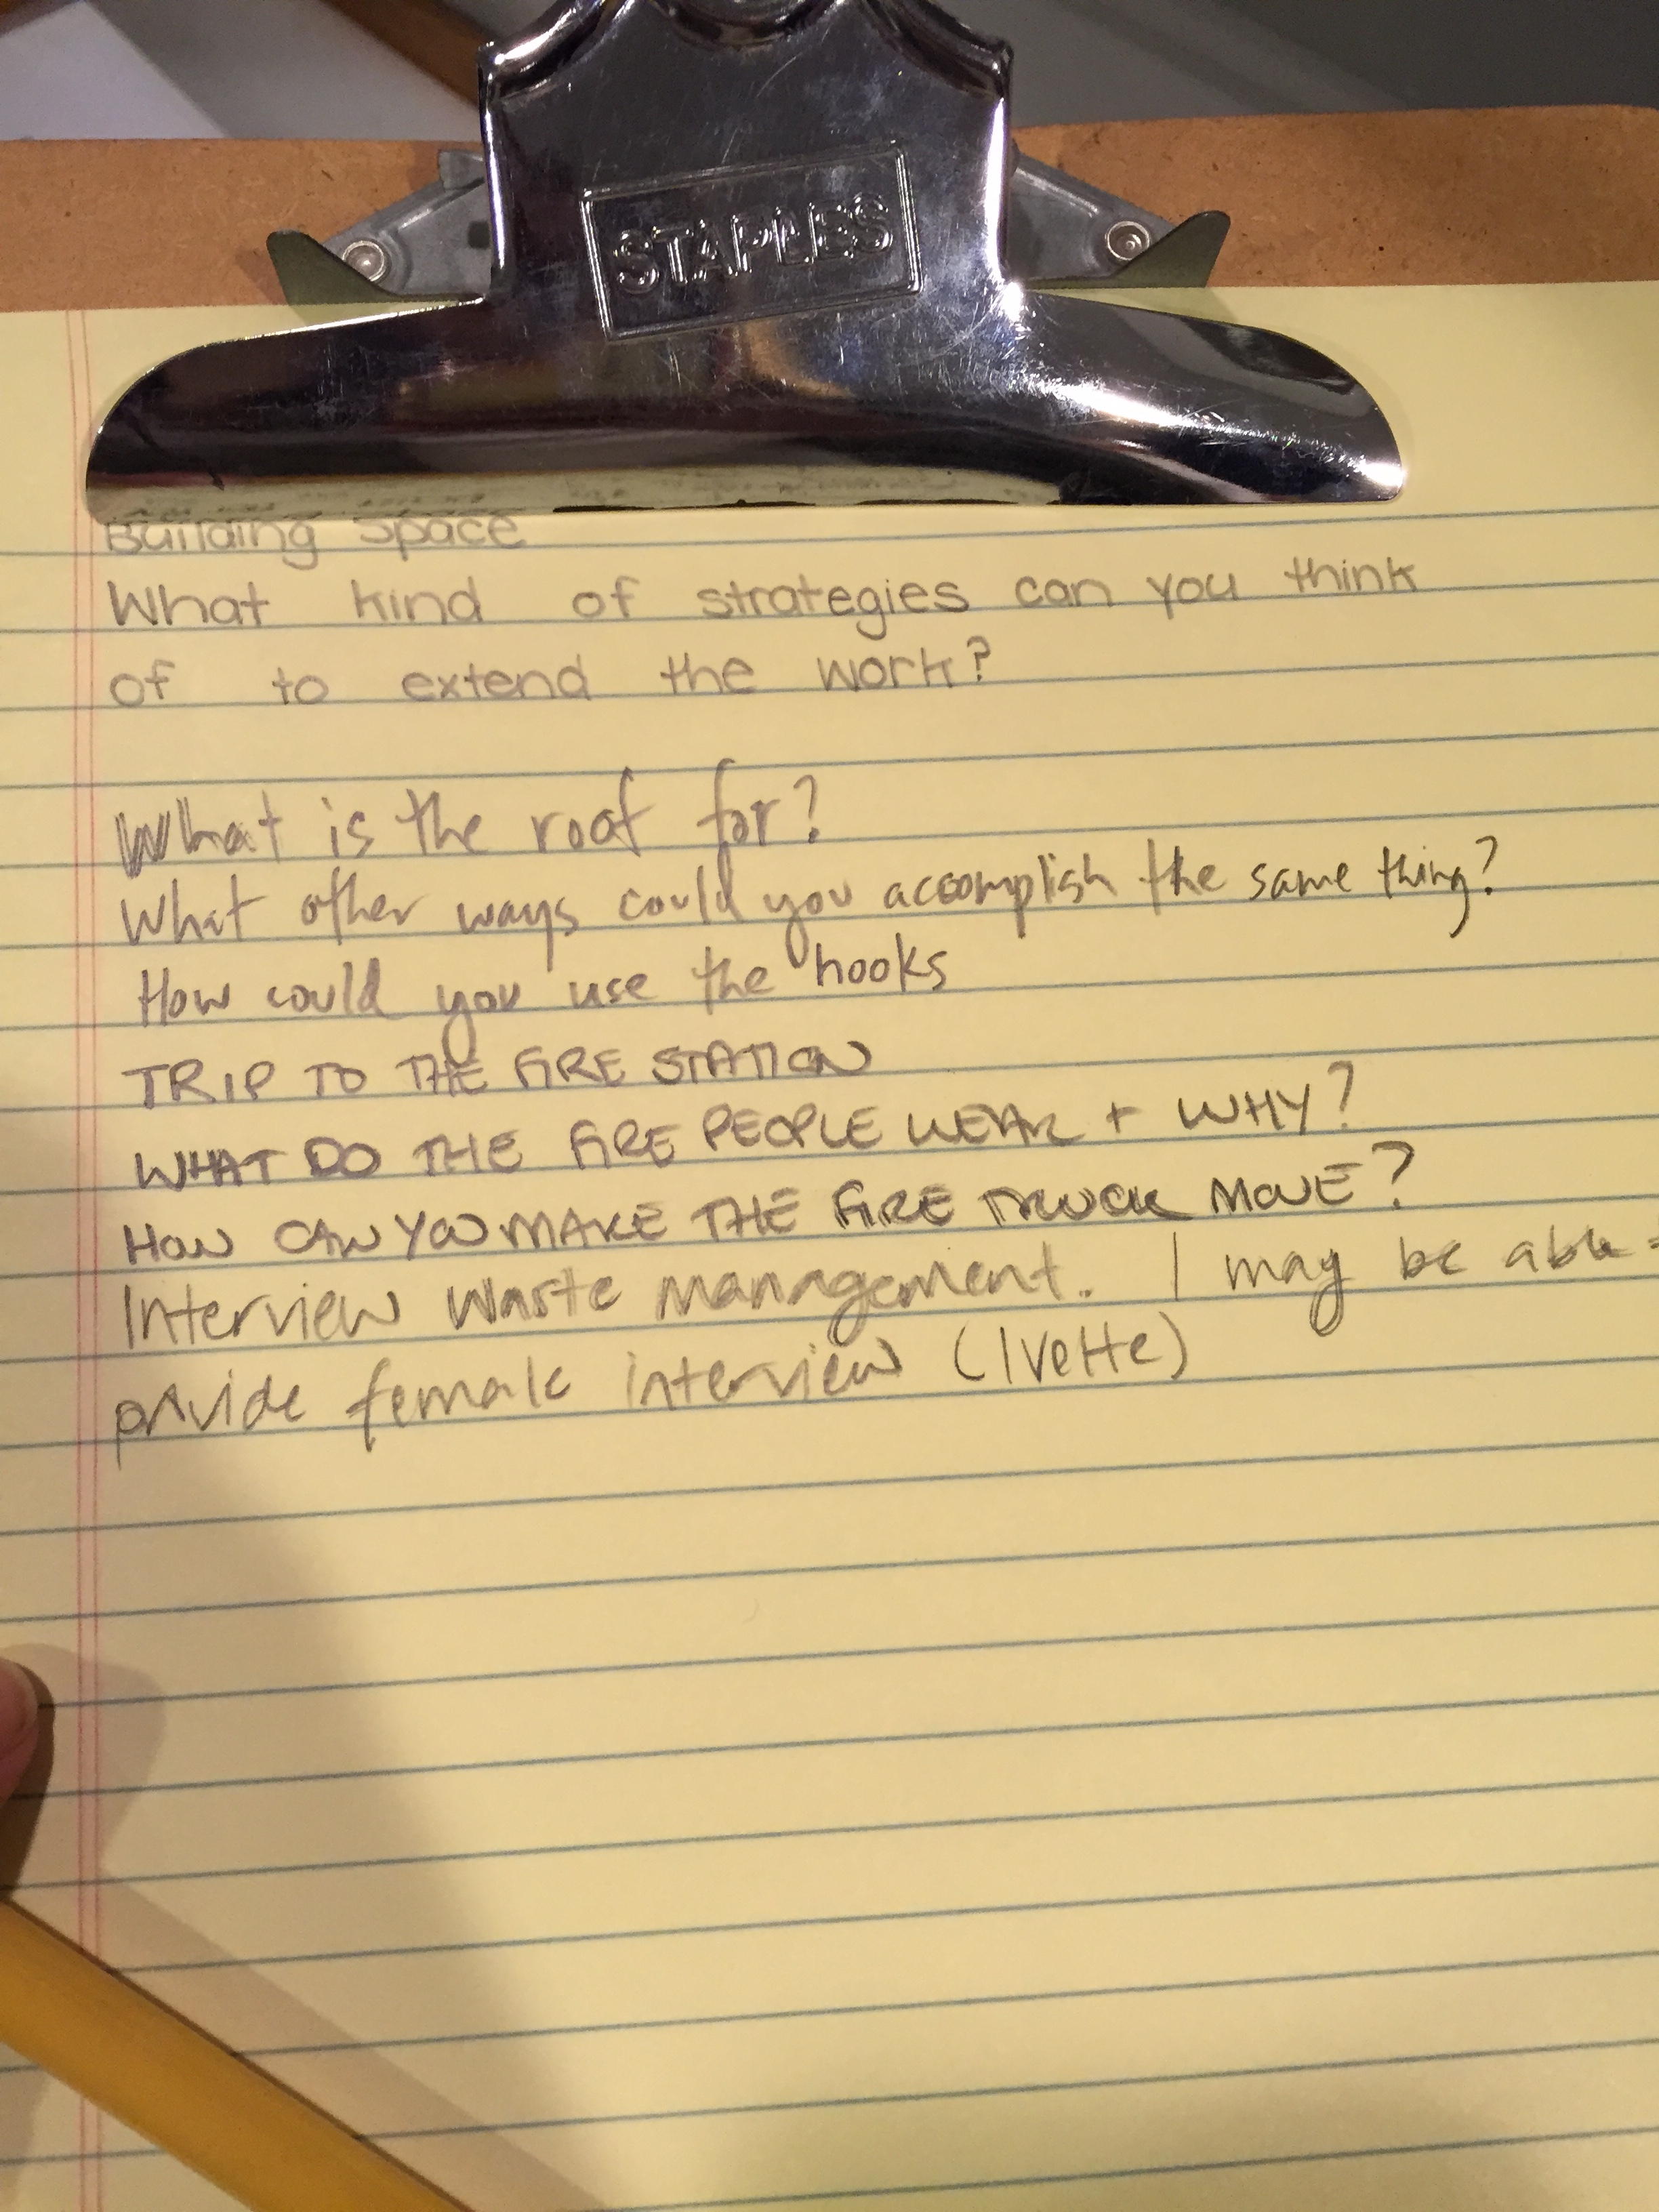 STAPLES
Building Space
What kind of strategies can you think
of to extend the work?
What is the roof for?
What other ways could you accomplish the same thing?
How could you use the hooks
TRIP TO THE FIRE STATION
WHAT DO THE FIRE PEOPLE WEAR + WHY?
HOW CAN YOU MAKE THE FIRE TRUCK MOVE?
Interview Waste Management. I may be able
provide female interview (Ivette)